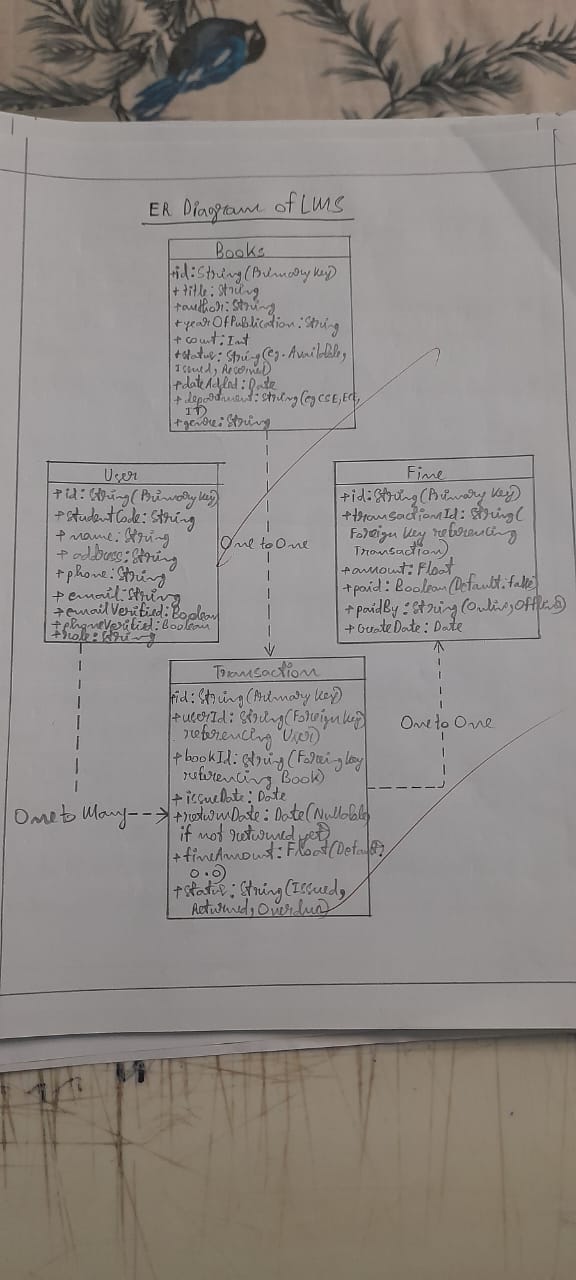 ER Diagram of LMS
Books
+id: String (Primary Key)
+title: String
+author: String
+yearOfPublication: String
+count: Int
+status: String (eg. Available,
Issued, Reserved)
+dateAdded: Date
+department: String (eg CSE, ECE,
IT)
+genre: String
User
+id: String (Primary Key)
+studentCode: String
+name: String
+address: String
+phone: String
+email: String
+emailVerified: Boolean
+phoneVerified: Boolean
+role: String
One to One
Fine
+id: String (Primary Key)
+transactionId: String (
Foreign Key referencing
Transaction)
+amount: Float
+paid: Boolean (Default: false)
+paidBy: String (Online, Offline)
+createDate: Date
Transaction
+id: String (Primary Key)
+userId: String (Foreign Key
referencing User)
+bookId: String (Foreing Key
referencing Book)
+issueDate: Date
+returnDate: Date (Nullable
if not returned yet)
+fineAmount: Float (Default:
0.0)
+status: String (Issued,
Returned, Overdue)
One to Many
One to One